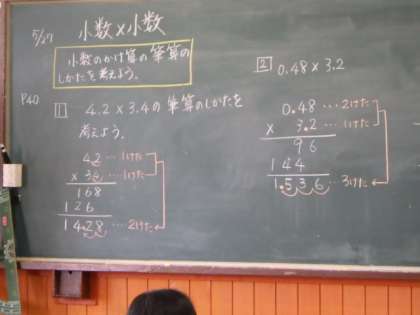 5/27 小数×小数
小数のかけ算の筆算の
しかたを考えよう。
P40
1 4.2×3.4の筆算のしかたを
考えよう。
4.2…1けた
×3.4…1けた
168
126
14.28…2けた
2 0.48×3.2
0.48…2けた
×3.2…1けた
96
144
1.536…3けた